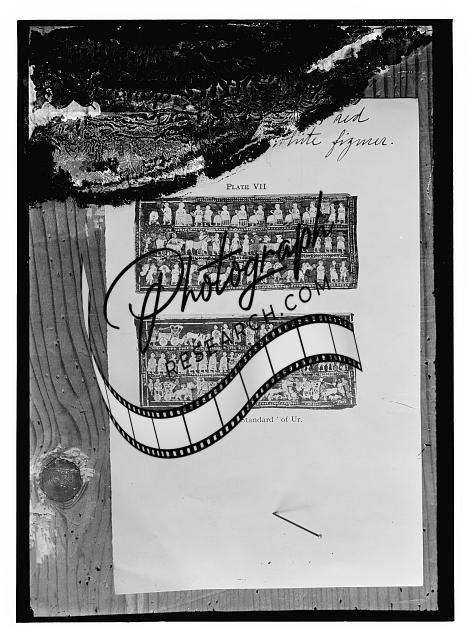 red
white figures.
PLATE VII
Photograph
RESEARCH.COM
Standard ' of Ur.